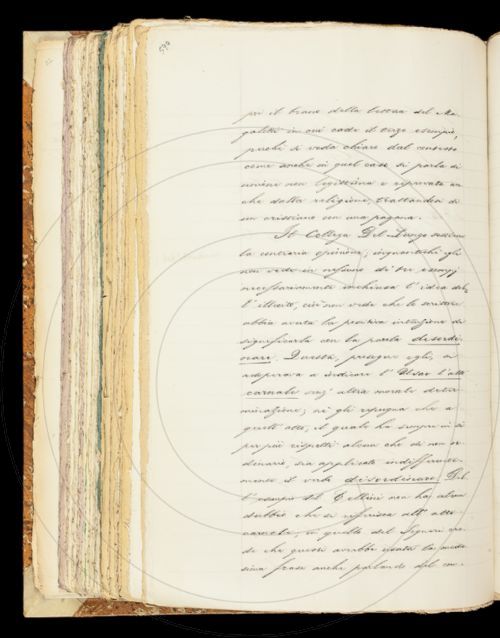 590
poi il brano della lettera del Ma-
galotti in cui cade il terzo esempio,
perchè si veda chiaro dal contesto
come anche in quel caso si parla di
unione non legittima e riprovata an-
che dalla religione, trattandosi di
un cristiano con una pagana.
Il Collega Del Lungo sostiene
la contraria opinione; inquantochè egli
non vede in nessuno di' tre esempj
necessariamente inchiusa l'idea del-
l'illecito, cioè non vede che lo scrittore
abbia avuta la positiva intenzione di
significarla con la parola disordi-
nare. Questa, prosegue egli, si
adoperava a indicare l'Usar l'atto
carnale senz'altra morale deter-
minazione; nè gli repugna che a
quest'atto, il quale ha sempre in sè
per più rispetti alcun che di non or-
dinario, sia applicato indifferente-
mente il verbo disordinare. Del-
l'esempio del Cellini non ha alcun
dubbio che si riferisca all'atto
carnale; in quello del Segneri cre-
de che questi avrebbe usata la mede-
sima frase anche parlando del con-